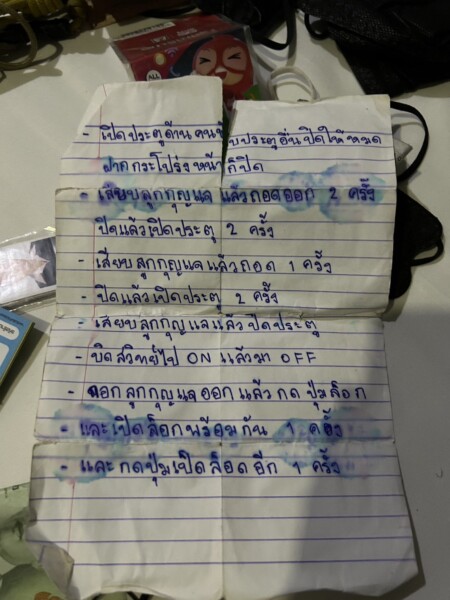 - เปิดประตูด้านคนขับประตูอื่นปิดให้หมด
ฝากกระโปร่งหน้าก็ปิด
- เสียบลูกกุญแจ แล้วถอดออก 2 ครั้ง
ปิดแล้วเปิดประตุ 2 ครั้ง
- เสียบลูกกุญแจแล้วถอด 1 ครั้ง
- ปิดแล้วเปิดประตุ 2 ครั้ง
- เสียบลูกกุญแจแล้วปิดประตุ
- บิดสวิทย์ไป ON แล้วมา OFF
- ถอกลูกกุญแจออกแล้วกดปุ่มล็อก
- และเปิดล็อกพร้อมกัน 1 ครั้ง
- และกดปุ่มเปิดล็อดอีก 1 ครั้ง